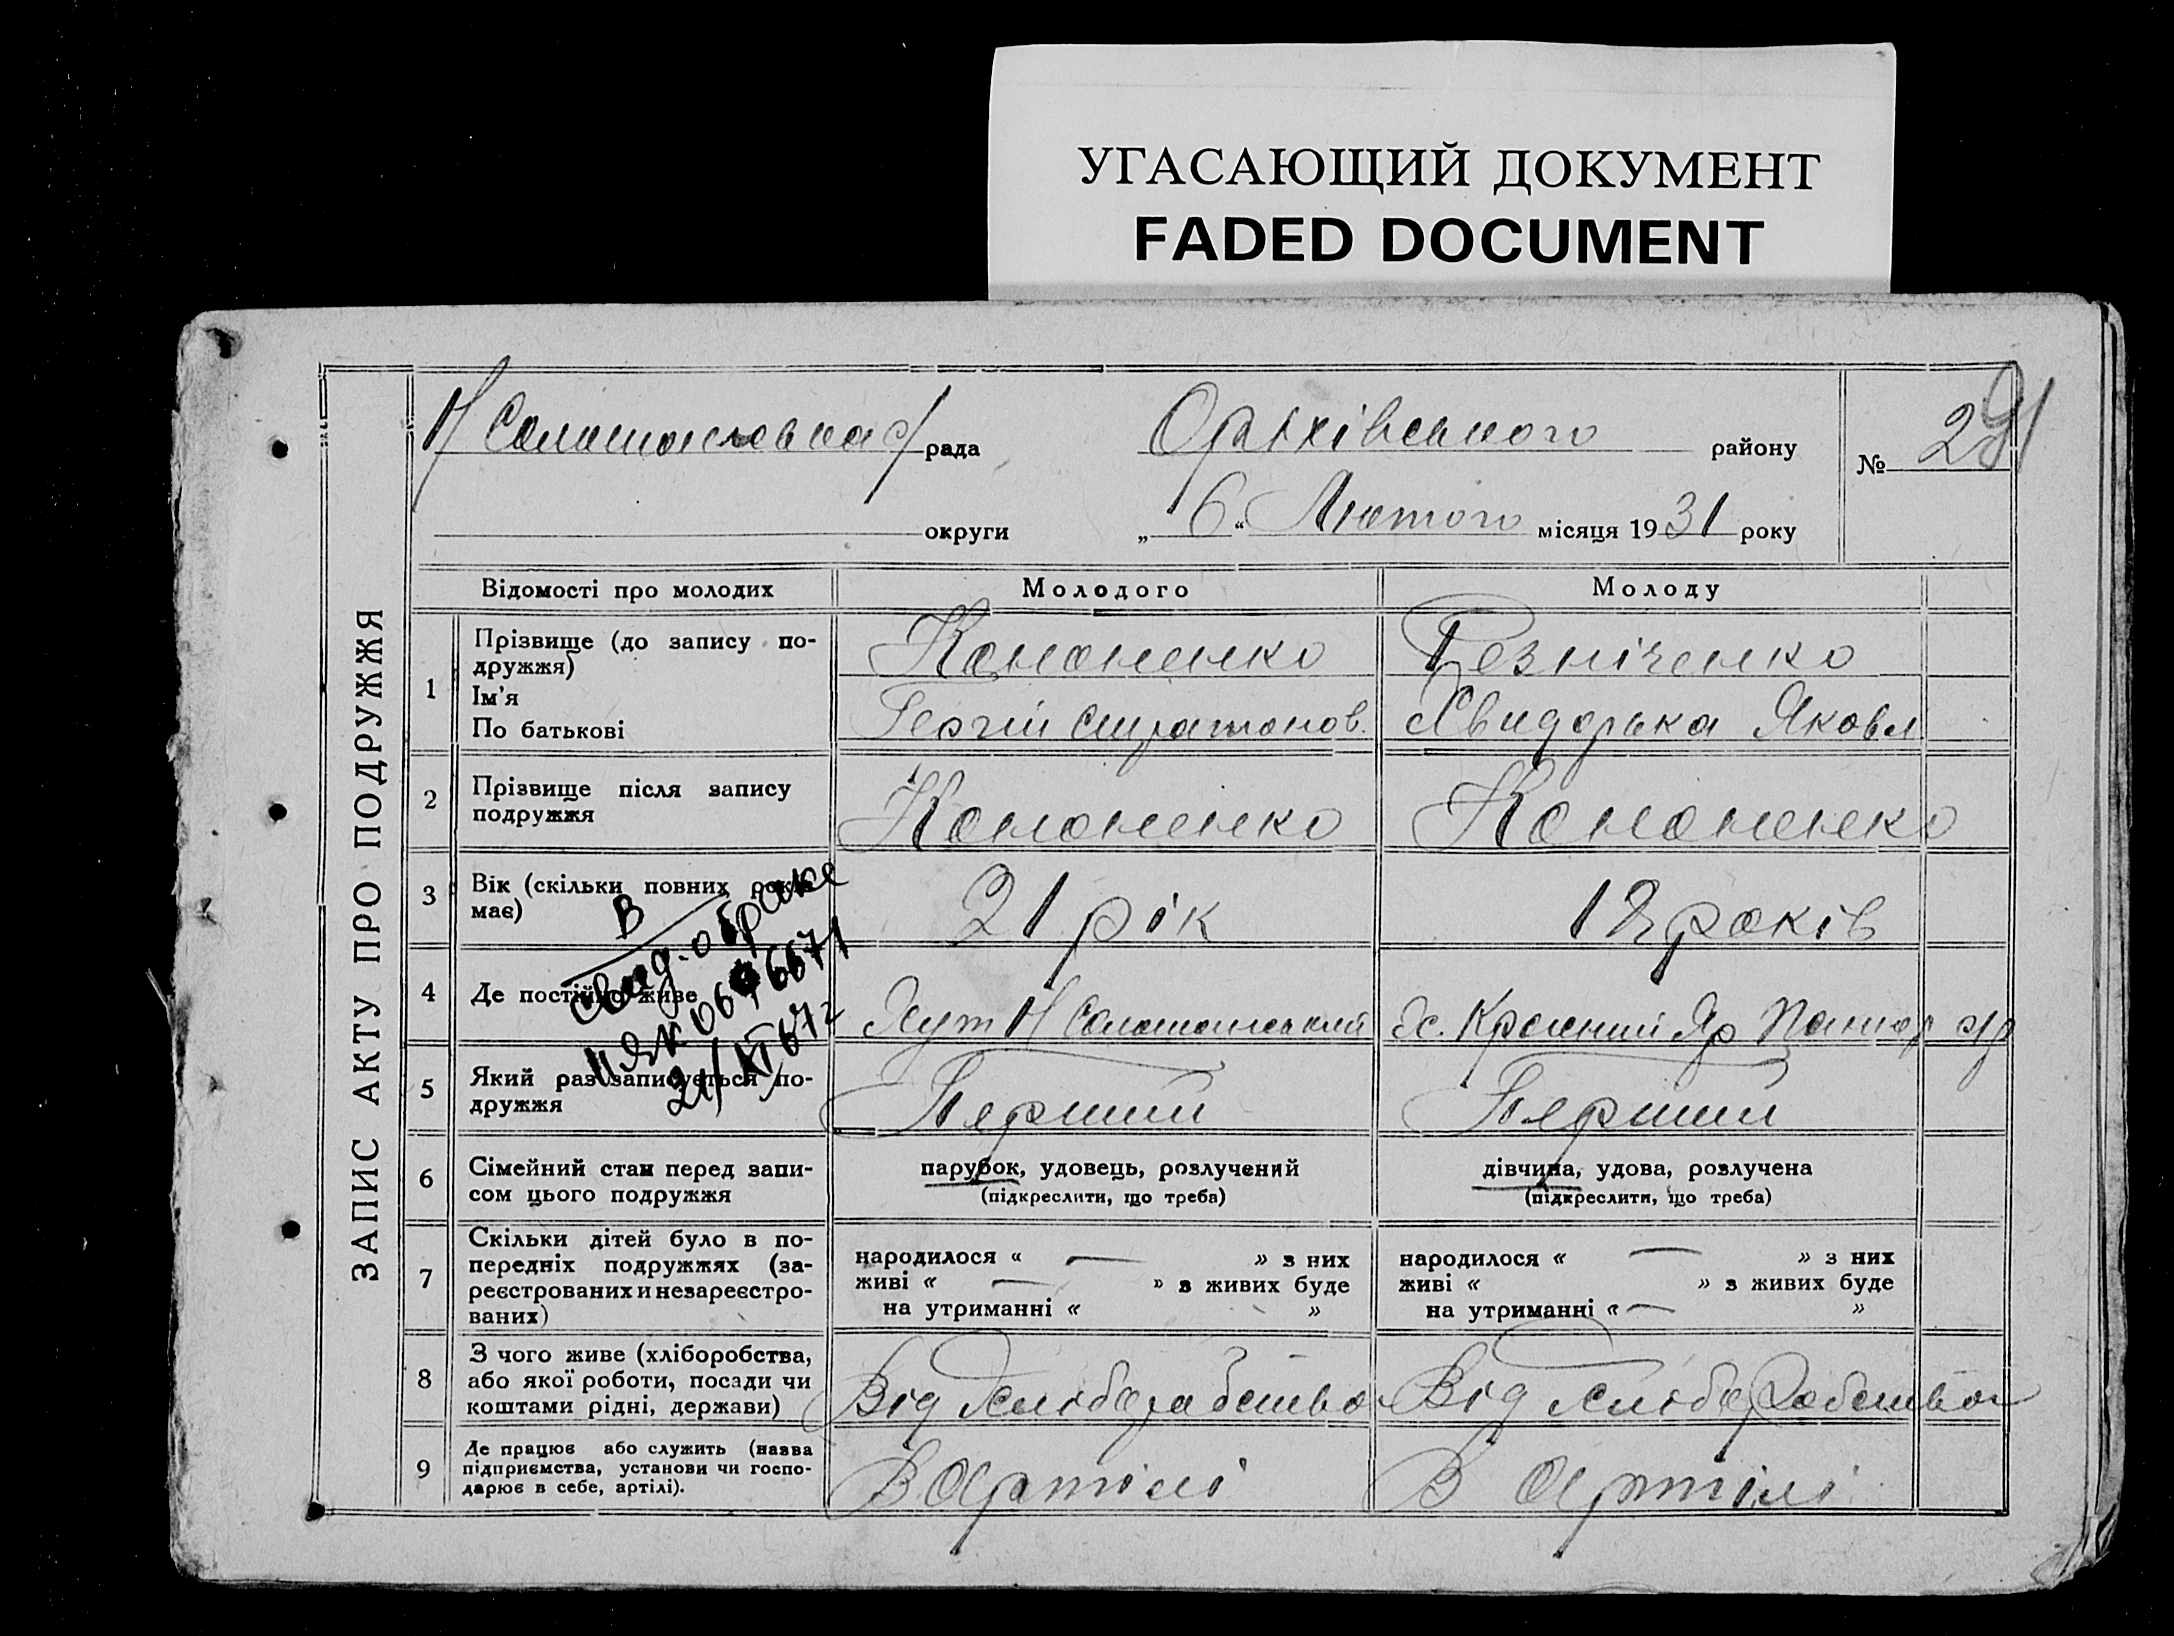 УГАСАЮЩИЙ ДОКУМЕНТ
FADED DOCUMENT
ЗАПИС АКТУ ПРО ПОДРУЖЖЯ
рада
Оріхівського району
№ 29
округи
„ 6 “ Лютого місяця 1931 року
Відомості про молодих
Молодого
Молоду
1
Прізвище (до запису по-
дружжя)
Ім'я
По батькові
Кононенко
Георгій Стратонов.
Резніченко
Явидорька Яковл
2
Прізвище після запису
подружжя
Кононенко
Кононенко
3
Вік (скільки повних років
має)
21 рік
18 років
4
Де постійно живе
Хут Н
х. Красний Яр
В
свид. о браке
II ЯК
21/XI 67 г
5
Який раз записується по-
дружжя
Перший
Перший
6
Сімейний стан перед запи-
сом цього подружжя
парубок, удовець, розлучений
(підкреслити, що треба)
дівчина, удова, розлучена
(підкреслити, що треба)
7
Скільки дітей було в по-
передніх подружжях (за-
реєстрованих и незареєстро-
ваних)
народилося « — » з них
живі « — » з живих буде
на утриманні « »
народилося « — » з них
живі « » з живих буде
на утриманні « — »
8
З чого живе (хліборобства,
або якої роботи, посади чи
коштами рідні, держави)
Від Хлеборабства
Від Хлеборабства
9
Де працює або служить (назва
підприємства, установи чи госпо-
дарює в себе, артілі).
В Артілі
В Артілі